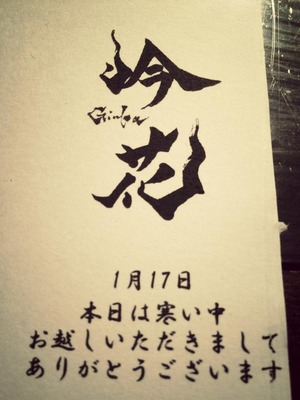 吟
Ginka
花
1月17日
本日は寒い中
お越しいただきまして
ありがとうございます